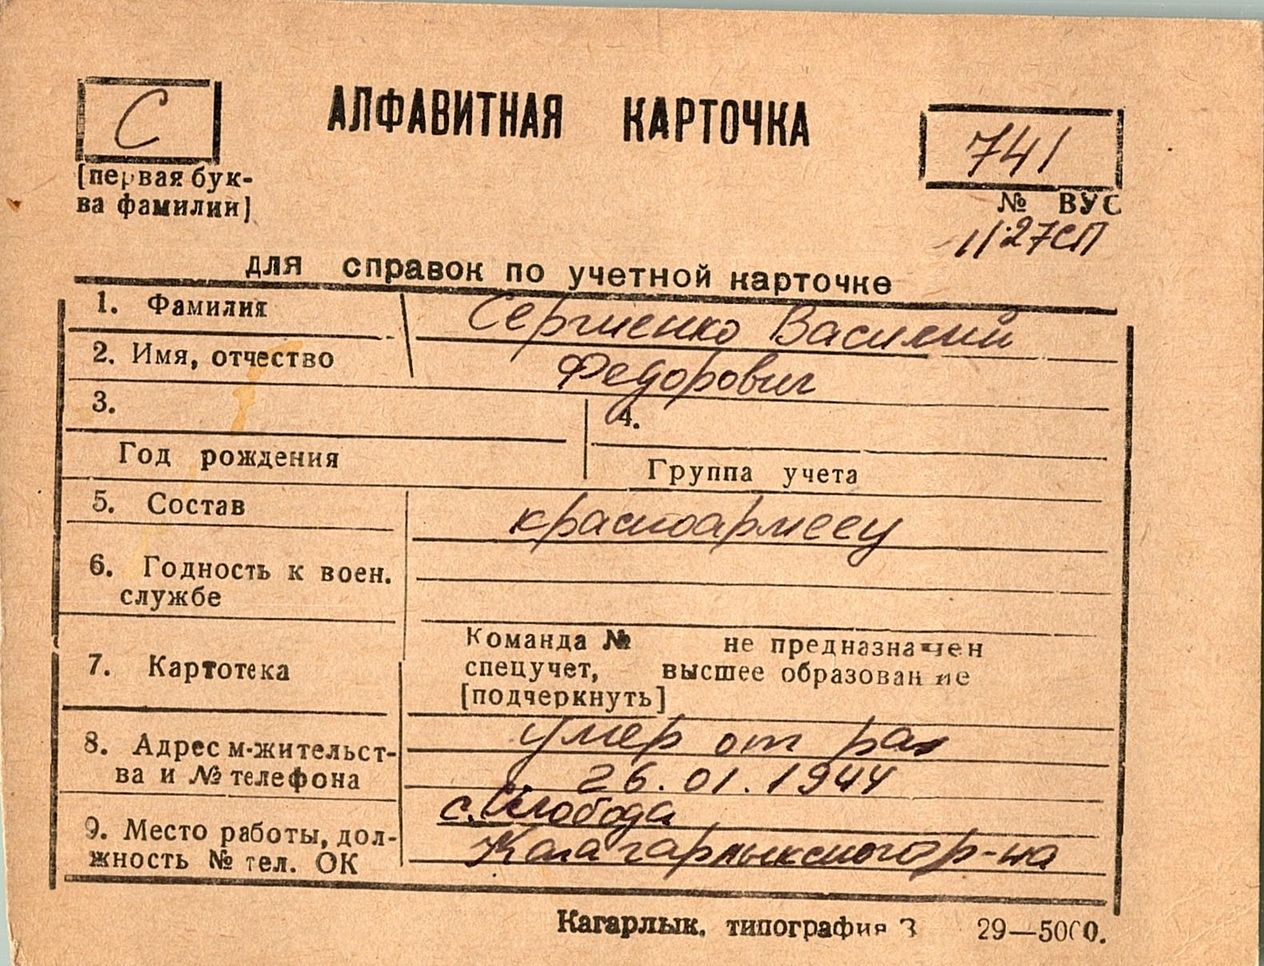 С
АЛФАВИТНАЯ КАРТОЧКА
741
[первая бук-
ва фамилии]
№ ВУС
1127СП
для справок по учетной карточке
1. Фамилия Сергиенко Василий
2. Имя, отчество Федорович
3.
4.
Год рождения
Группа учета
5. Состав красноармеец
6. Годность к воен.
службе
Команда № не предназначен
7. Картотека спецучет, высшее образование
[подчеркнуть]
8. Адрес м-жительст- умер от ран
ва и № телефона 26.01.1944
с. Слобода
9. Место работы, дол- Кагарлыкского р-на
жность № тел. ОК
Кагарлык. типография З 29—5000.